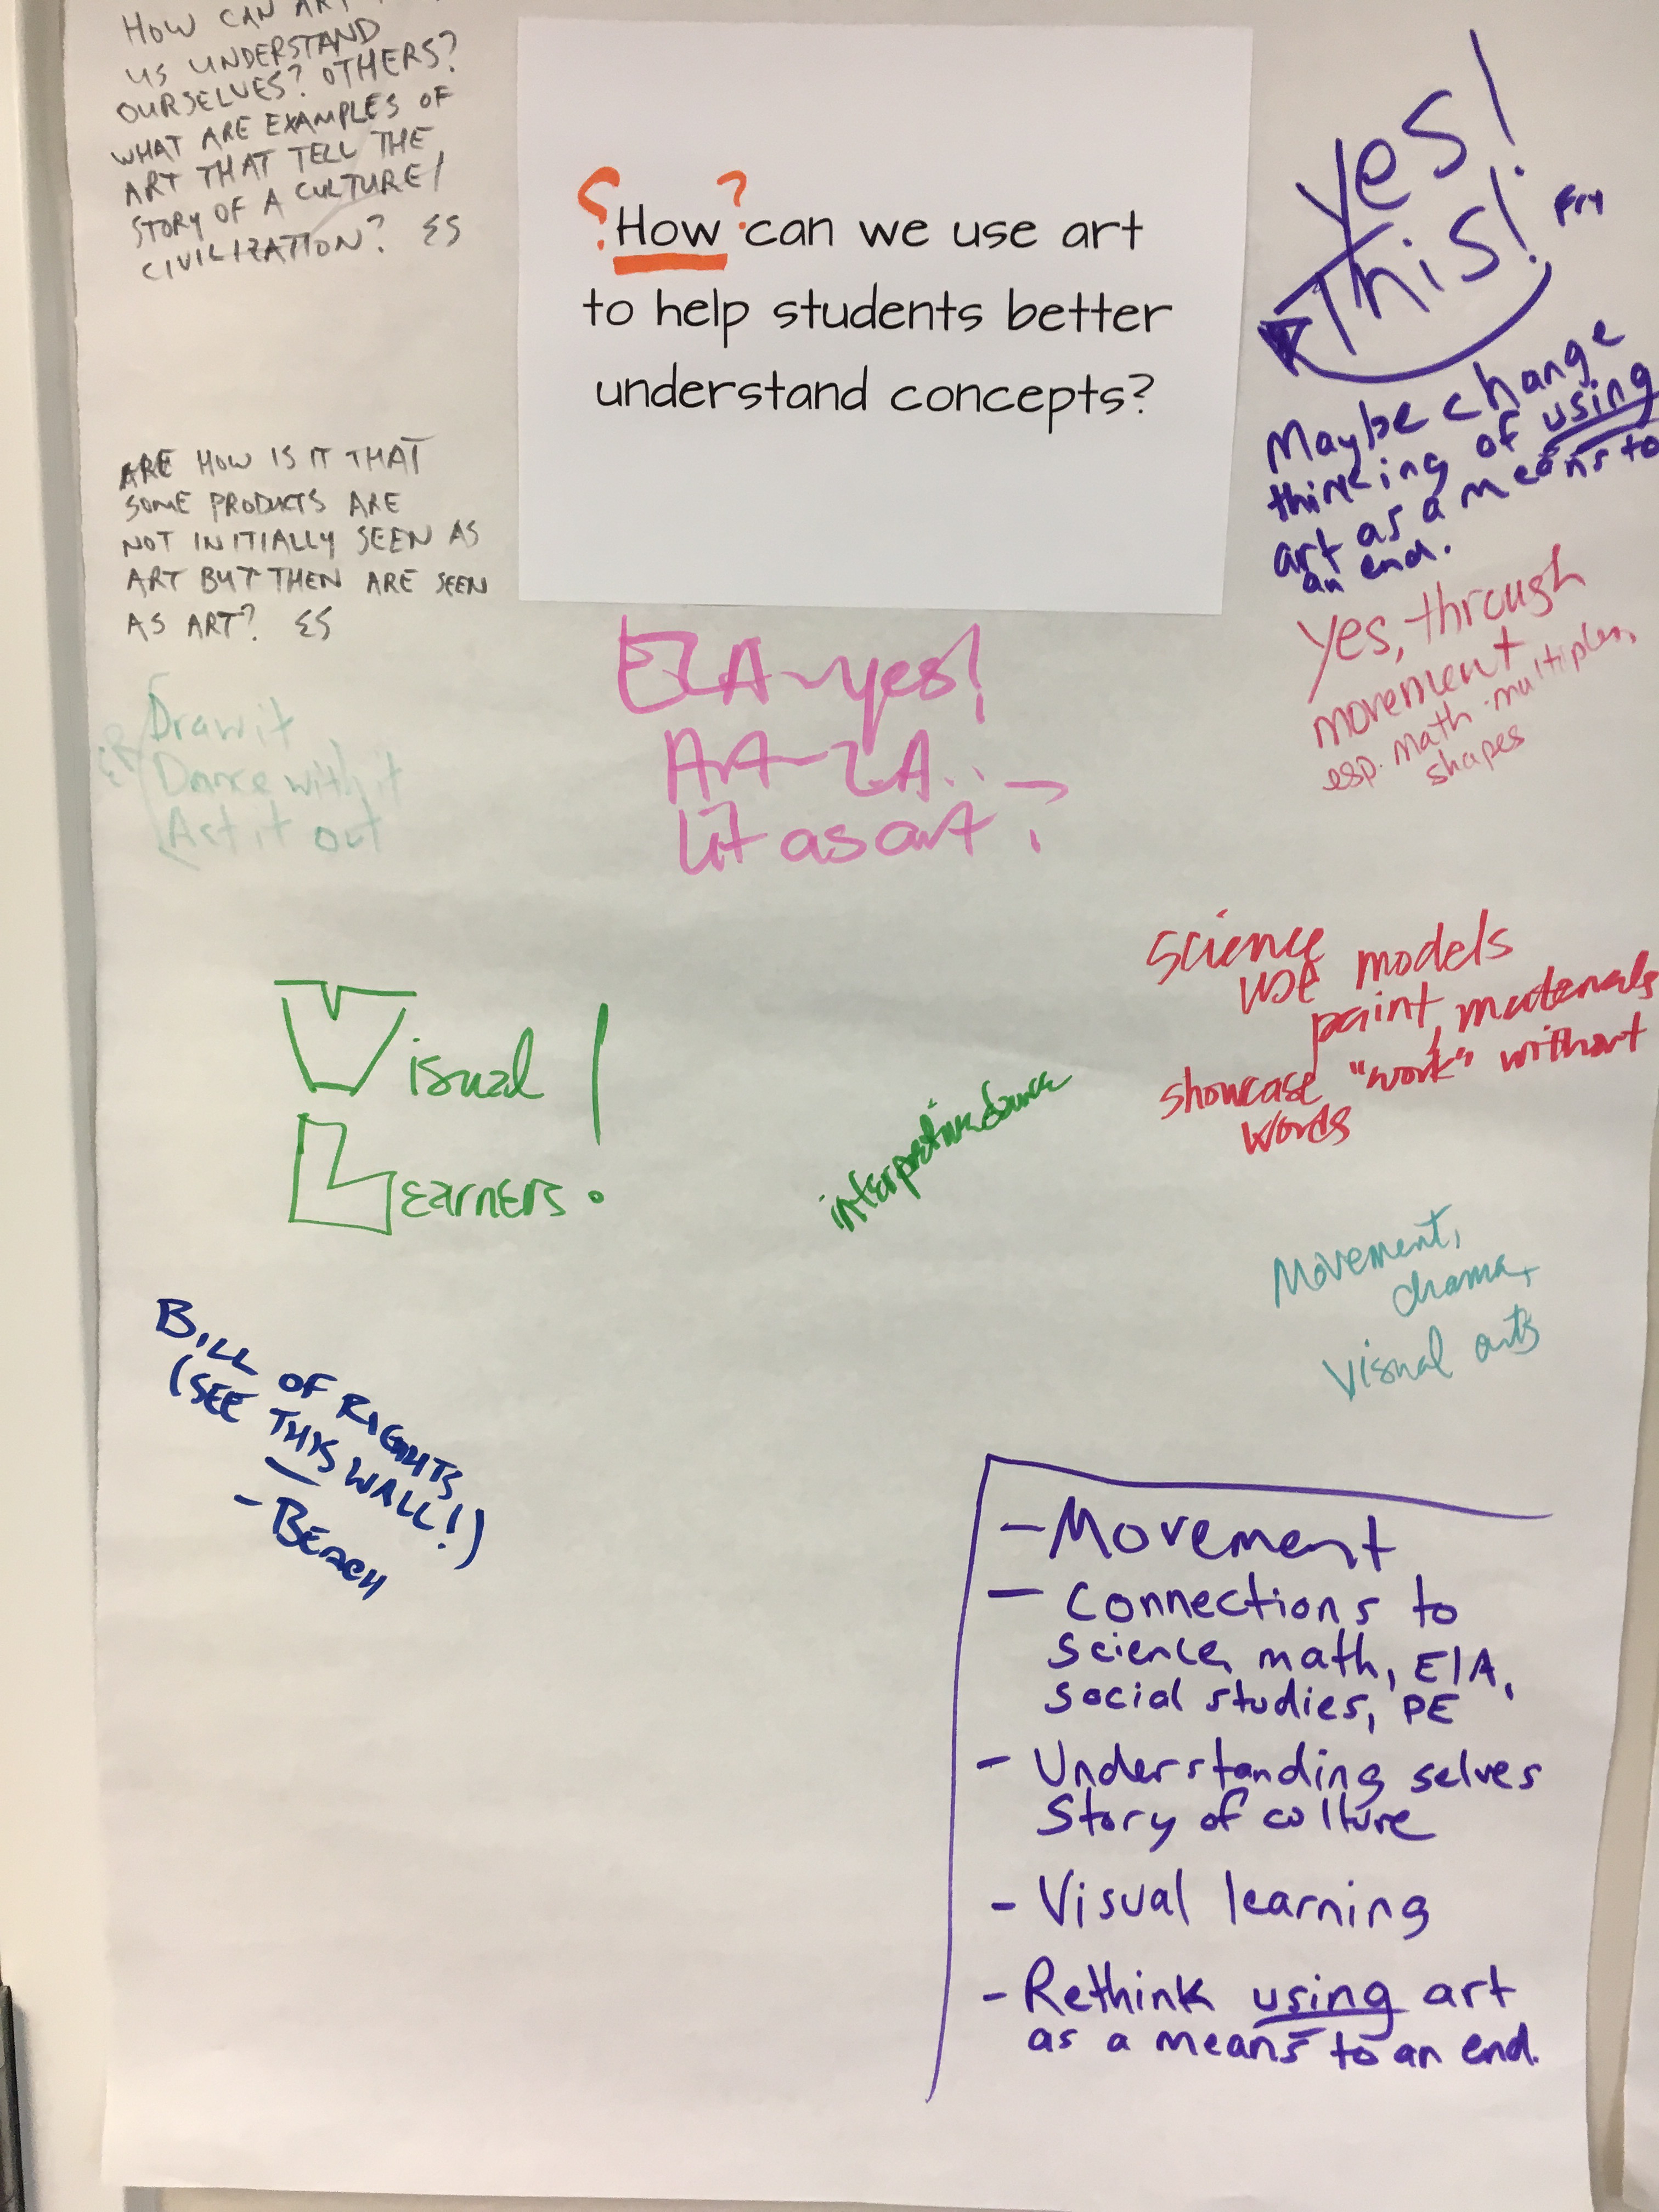 HOW CAN ART
US UNDERSTAND
OURSELVES? OTHERS?
WHAT ARE EXAMPLES OF
ART THAT TELL THE
STORY OF A CULTURE/
CIVILIZATION? ES
ARE HOW IS IT THAT
SOME PRODUCTS ARE
NOT INITIALLY SEEN AS
ART BUT THEN ARE SEEN
AS ART? ES
Draw it
Dance with it
Act it out
? How? can we use art
to help students better
understand concepts?
yes!
This!
Maybe change
thinking of using
art as a means to
an end.
yes, through
movement
esp. math - multiples,
shapes
ELA ~ yes!
Lit as art
Science
use models
paint, materials
showcase "work" without
words
Visual
Learners.
interpretive dance
Movement,
drama,
Visual arts
BILL OF RIGHTS
(SEE THIS WALL!)
- BEACH
- Movement
- Connections to
science, math, ElA,
social studies, PE
- Understanding selves
Story of culture
- Visual learning
- Rethink using art
as a means to an end.